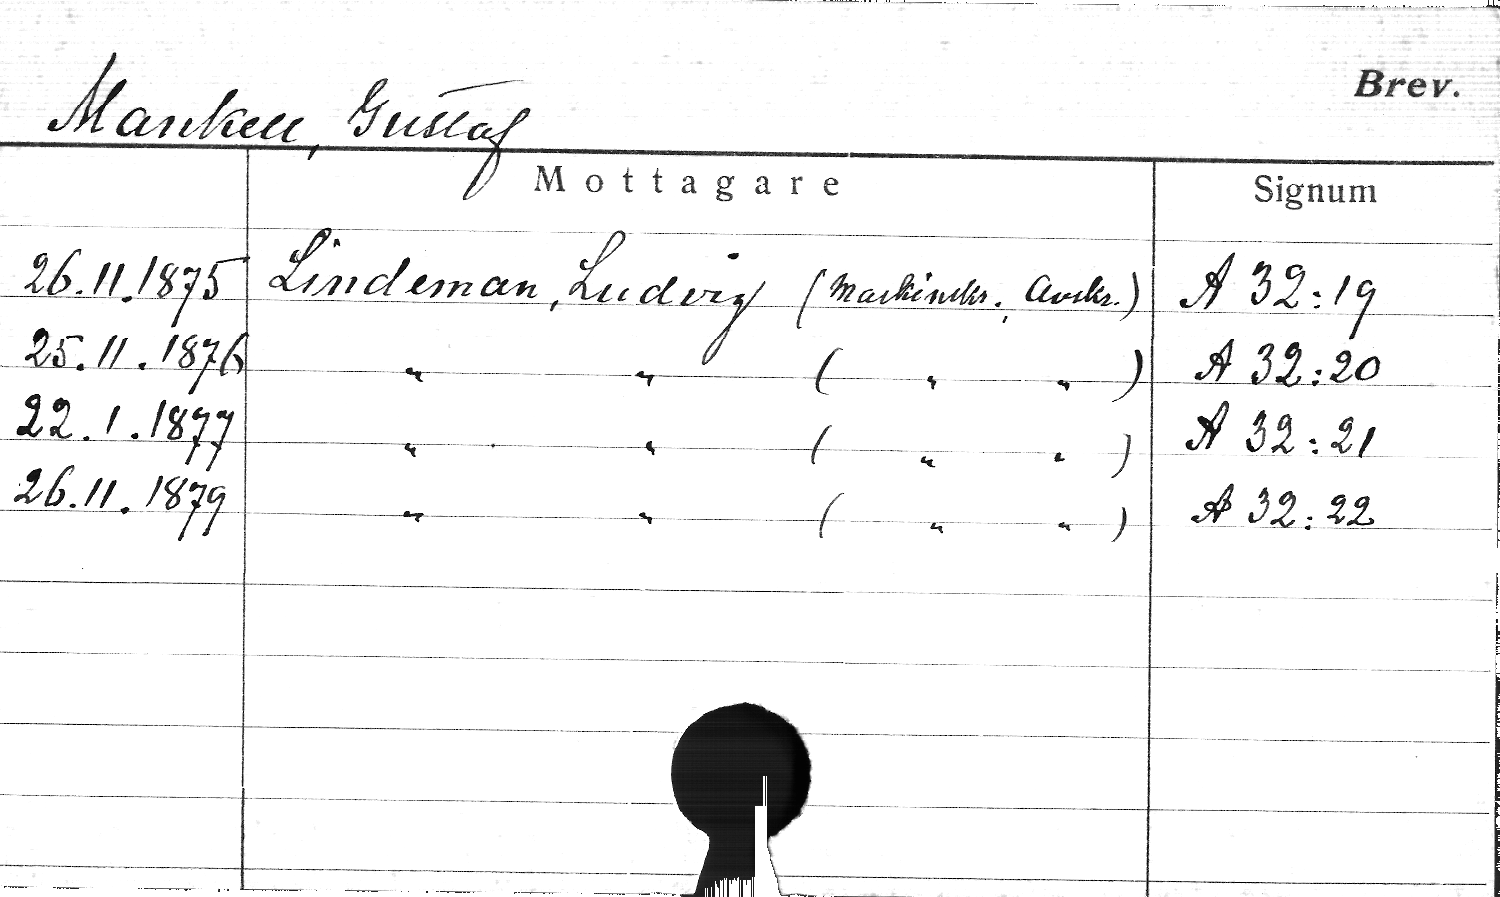 Brev.
Mankell, Gustaf
Mottagare Signum
26.11.1875 Lindeman, Ludvig (Maskinskr., Avskr.) A 32:19
25.11.1876 " " ( " " ) A 32:20
22.1.1877 " " ( " " ) A 32:21
26.11.1879 " " ( " " ) A 32:22